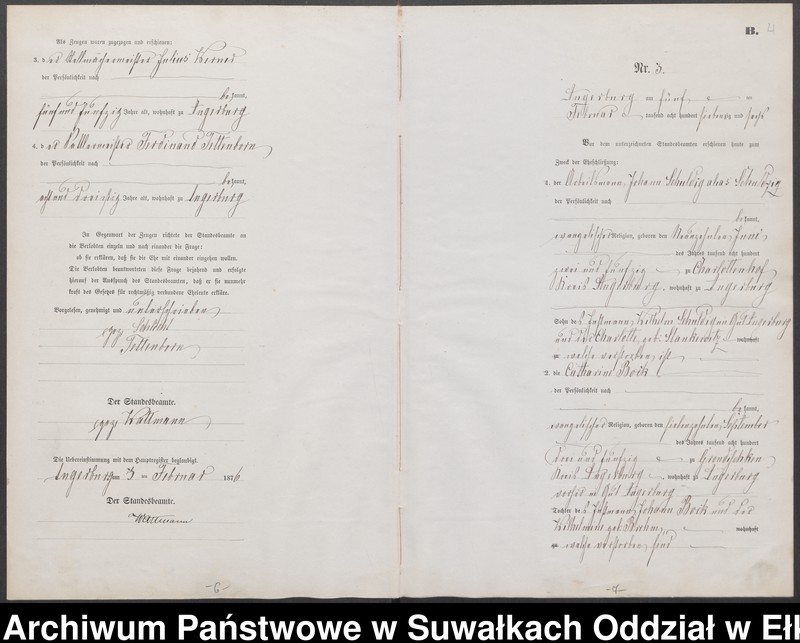 Als Zeugen waren zugezogen und erschienen:
3. der Stellmachermeister Julius
der Persönlichkeit nach
be kannt,
fünf und fünfzig Jahre alt, wohnhaft zu Angerburg
4. der Sattlermeister Ferdinand Tettenborn
der Persönlichkeit nach
be kannt,
acht und dreißig Jahre alt, wohnhaft zu Angerburg
In Gegenwart der Zeugen richtete der Standesbeamte an
die Verlobten einzeln und nach einander die Frage:
ob sie erklären, daß sie die Ehe mit einander eingehen wollen.
Die Verlobten beantworteten diese Frage bejahend und erfolgte
hierauf der Ausspruch des Standesbeamten, daß er sie nunmehr
kraft des Gesetzes für rechtmäßig verbundene Eheleute erkläre.
Vorgelesen, genehmigt und unterschrieben
gez.
Tettenborn
Der Standesbeamte.
gez. Wattmann
Die Uebereinstimmung mit dem Hauptregister beglaubigt.
Angerburg am 3 ten Februar 1876
Der Standesbeamte.
Wattmann
-6-
B. 4
Nr. 3.
Angerburg am fünf ten
Februar tausend acht hundert siebenzig und sechs
Vor dem unterzeichneten Standesbeamten erschienen heute zum
Zweck der Eheschließung:
1. der Arbeitsmann Johann Schuldig alias
der Persönlichkeit nach
be kannt,
evangelischer Religion, geboren den neunzehnten Juni
des Jahres tausend acht hundert
zwei und fünfzig zu Charlottenhof
Kreis Angerburg, wohnhaft zu Angerburg
Sohn des Instmann Wilhelm Schuldig Gut Angerburg
und der Charlotte, geb. Stankewitz wohnhaft
zu welche verstorben ist
2. die Catharine Bock
der Persönlichkeit nach
be kannt,
evangelischer Religion, geboren den siebenzehnten September
des Jahres tausend acht hundert
drei und fünfzig zu
Kreis Angerburg, wohnhaft zu Angerburg
vorher in Gut Angerburg
Tochter des Instmann Johann Bock und der
Wilhelmine geb. wohnhaft
zu welche verstorben sind
-7-
Archiwum Państwowe w Suwałkach Oddział w Eł